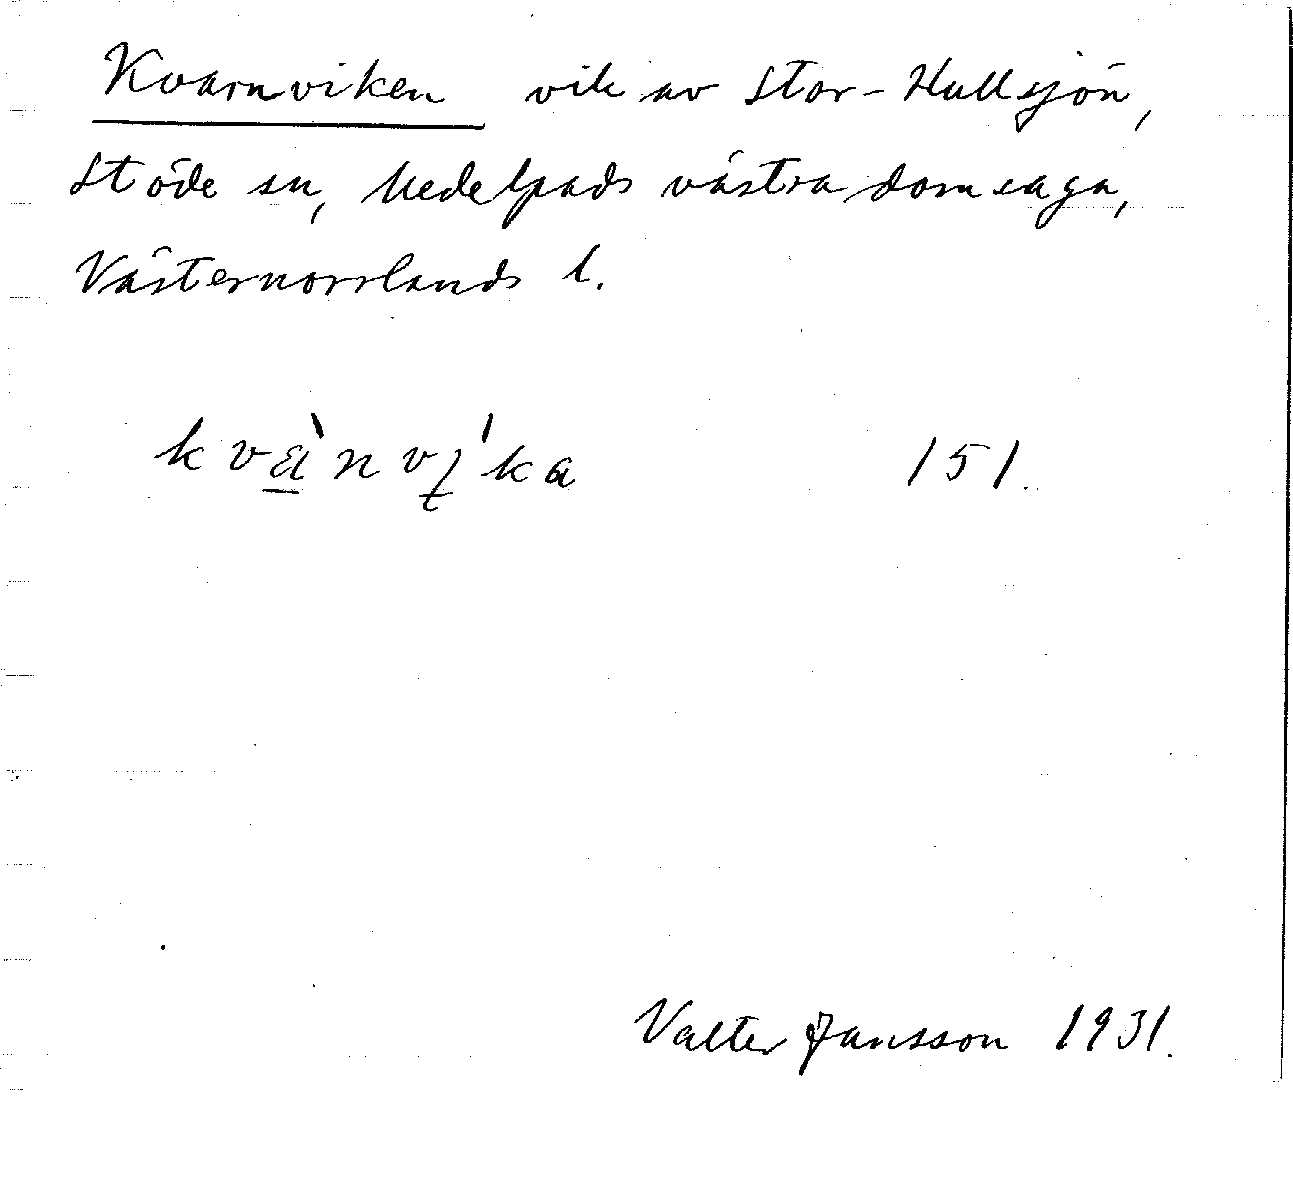 Kvarnviken vik av Stor-Hullsjön,
Stöde sn, Medelpads västra domsaga,
Västernorrlands l.
kvа̱̀nví̵ka 151.
Valter Jansson 1931.